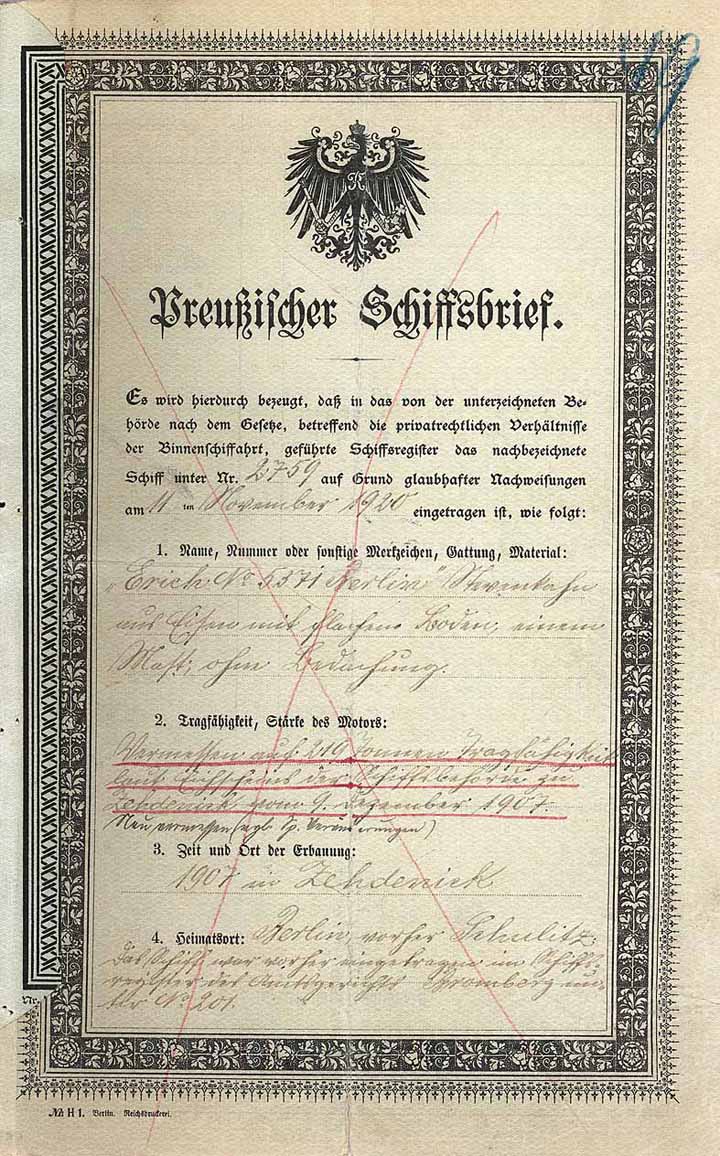 49
Preußischer Schiffsbrief.
Es wird hierdurch bezeugt, daß in das von der unterzeichneten Be-
hörde nach dem Gesetze, betreffend die privatrechtlichen Verhältnisse
der Binnenschiffahrt, geführte Schiffsregister das nachbezeichnete
Schiff unter Nr. 2759 auf Grund glaubhafter Nachweisungen
am 11 ten November 1920 eingetragen ist, wie folgt:
1. Name, Nummer oder sonstige Merkzeichen, Gattung, Material:
„Erich No 5571 Berlin" Stevenkahn
aus Eisen mit flachem Boden, einem
Mast, ohne Bedachung.
2. Tragfähigkeit, Stärke des Motors:
Vermessen auf 219 Tonnen Tragfähigkeit
laut Eichscheins der Schiffsbehörde zu
Zehdenick vom 9. Dezember 1907.
Neu vermessen (vgl. Sp. Veränderungen)
3. Zeit und Ort der Erbauung:
1907 in Zehdenick
4. Heimatsort: Berlin, vorher Schulitz.
Das Schiff war vorher eingetragen im Schiffs-
register des Amtsgerichts Bromberg un-
ter No 201.
Nr.
No H 1. Berlin. Reichsdruckerei.